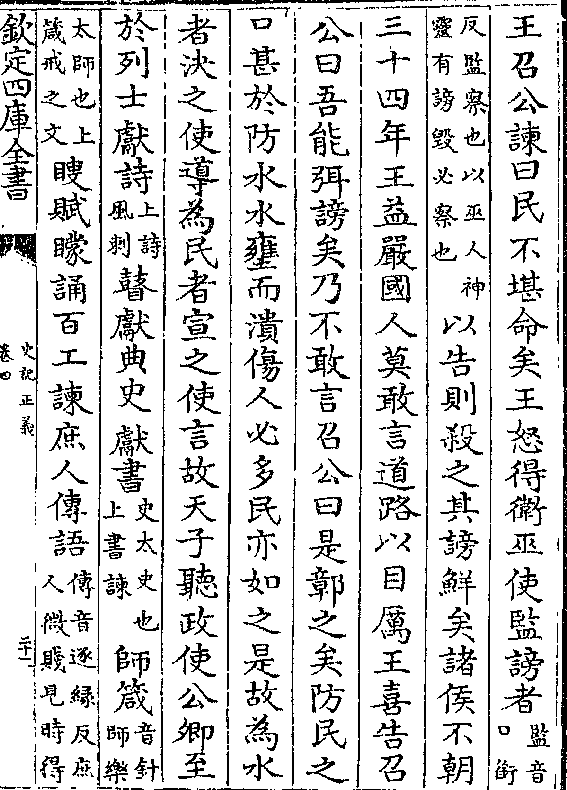 王召公諫曰民不堪命矣王怒得衛巫使監謗者監音口銜
反監察也以巫人神靈有謗毀必察也以告則殺之其謗鮮矣諸侯不朝
三十四年王益嚴國人莫敢言道路以目厲王喜告召
公曰吾能弭謗矣乃不敢言召公曰是鄣之矣防民之
口甚於防水水壅而潰傷人必多民亦如之是故為水
者決之使導為民者宣之使言故天子聽政使公卿至
於列士獻詩上詩風刺瞽獻典史獻書史太史也上書諫師箴音針師樂
太師也上箴戒之文瞍賦矇誦百工諫庶人傳語傳音逐緣反庶人微賤見時得
欽定四庫全書
史記正義
卷四
二十一